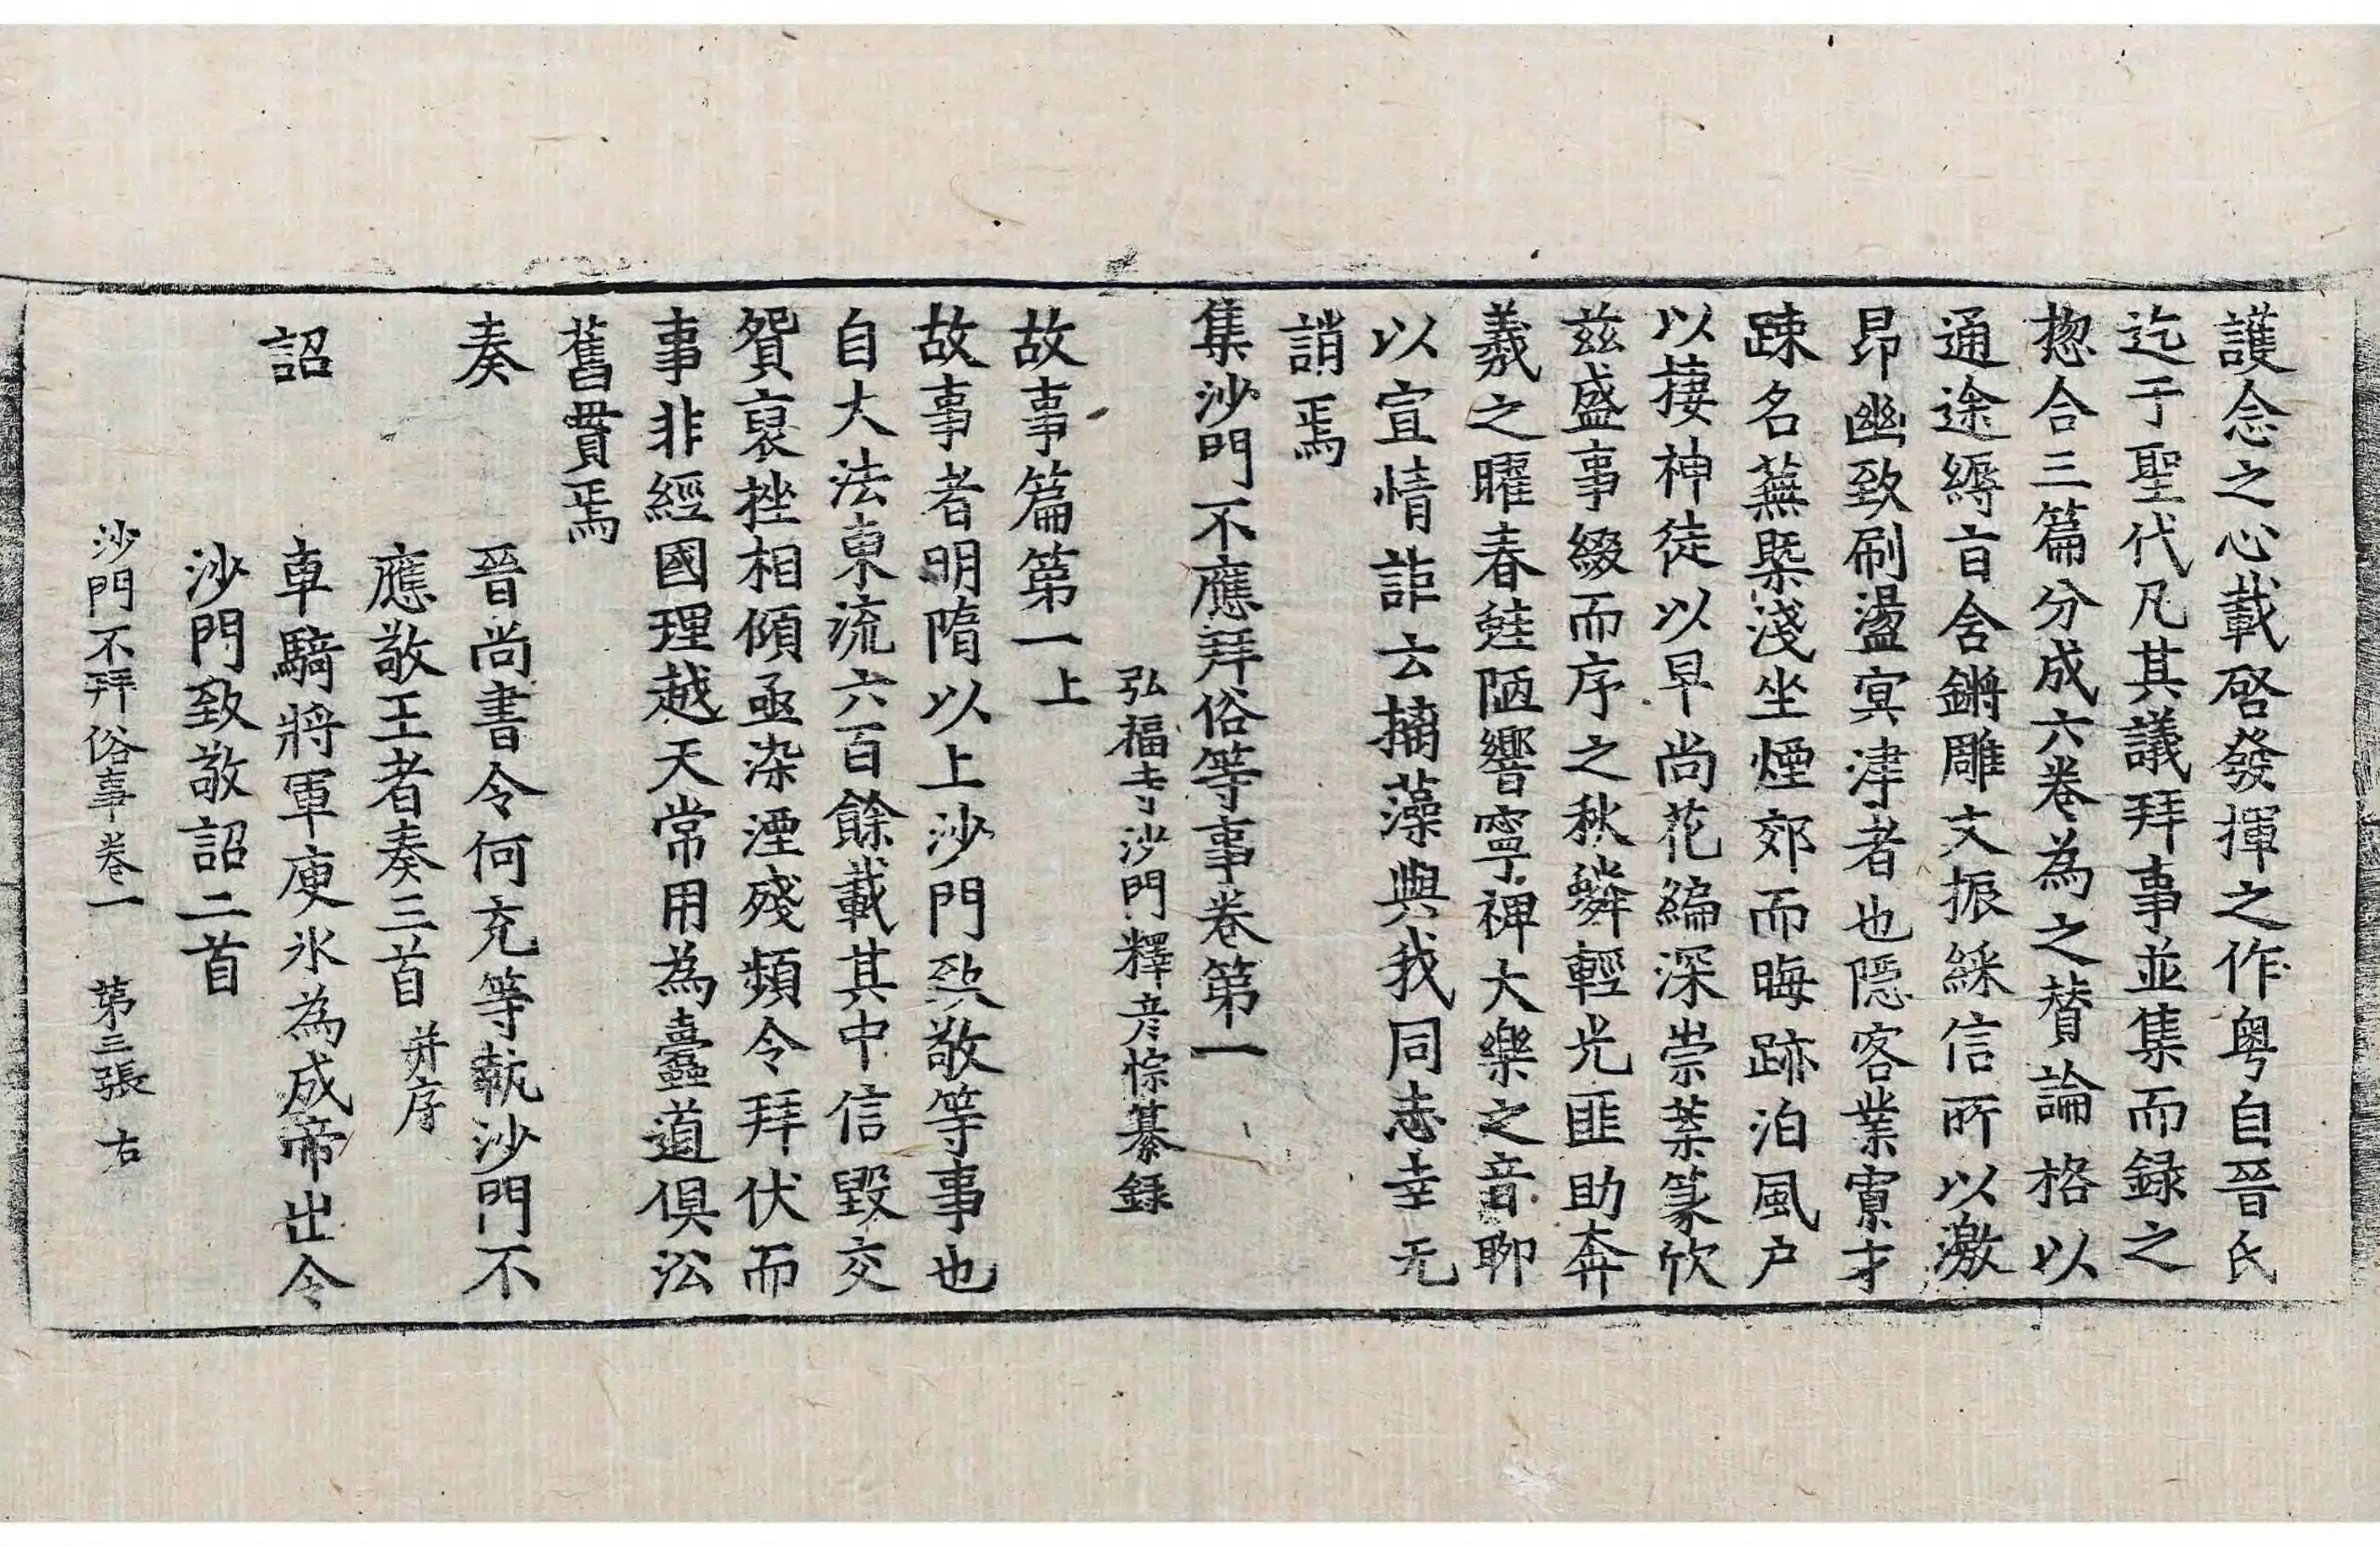 護念之心載啓發揮之作粤自晉氏
迄于聖代凡其議拜事並集而録之
惣合三篇分成六卷為之賛論格以
通途縟旨含鏘雕文振綵信所以激
昂幽致刷盪寞津者也隠客業寮才
踈名蕪槩淺坐煙郊而晦跡泊風户
以棲神徒以早尚花編深崇葉篆欣
兹盛事綴而序之秋蟒輕光匪助奔
羲之曜春蛙陋響寧裨大樂之音聊
以宣情詎云摛藻與我同志幸无
誚焉
集沙門不應拜俗等事卷第一
弘福寺沙門釋彦悰纂録
故事篇第一上
故事者明隋以上沙門致敬等事也
自大法東流六百餘載其中信毀交
貿裒挫相傾亟染湮殘頻令拜伏而
事非經國理越天常用為蠹道俱沿
舊貫焉
奏　晉尚書令何充等執沙門不
應敬王者奏三首并序
詔　車騎將軍庾氷為成帝出令
沙門致敬詔二首
沙門不拜俗事卷一　第三張　右